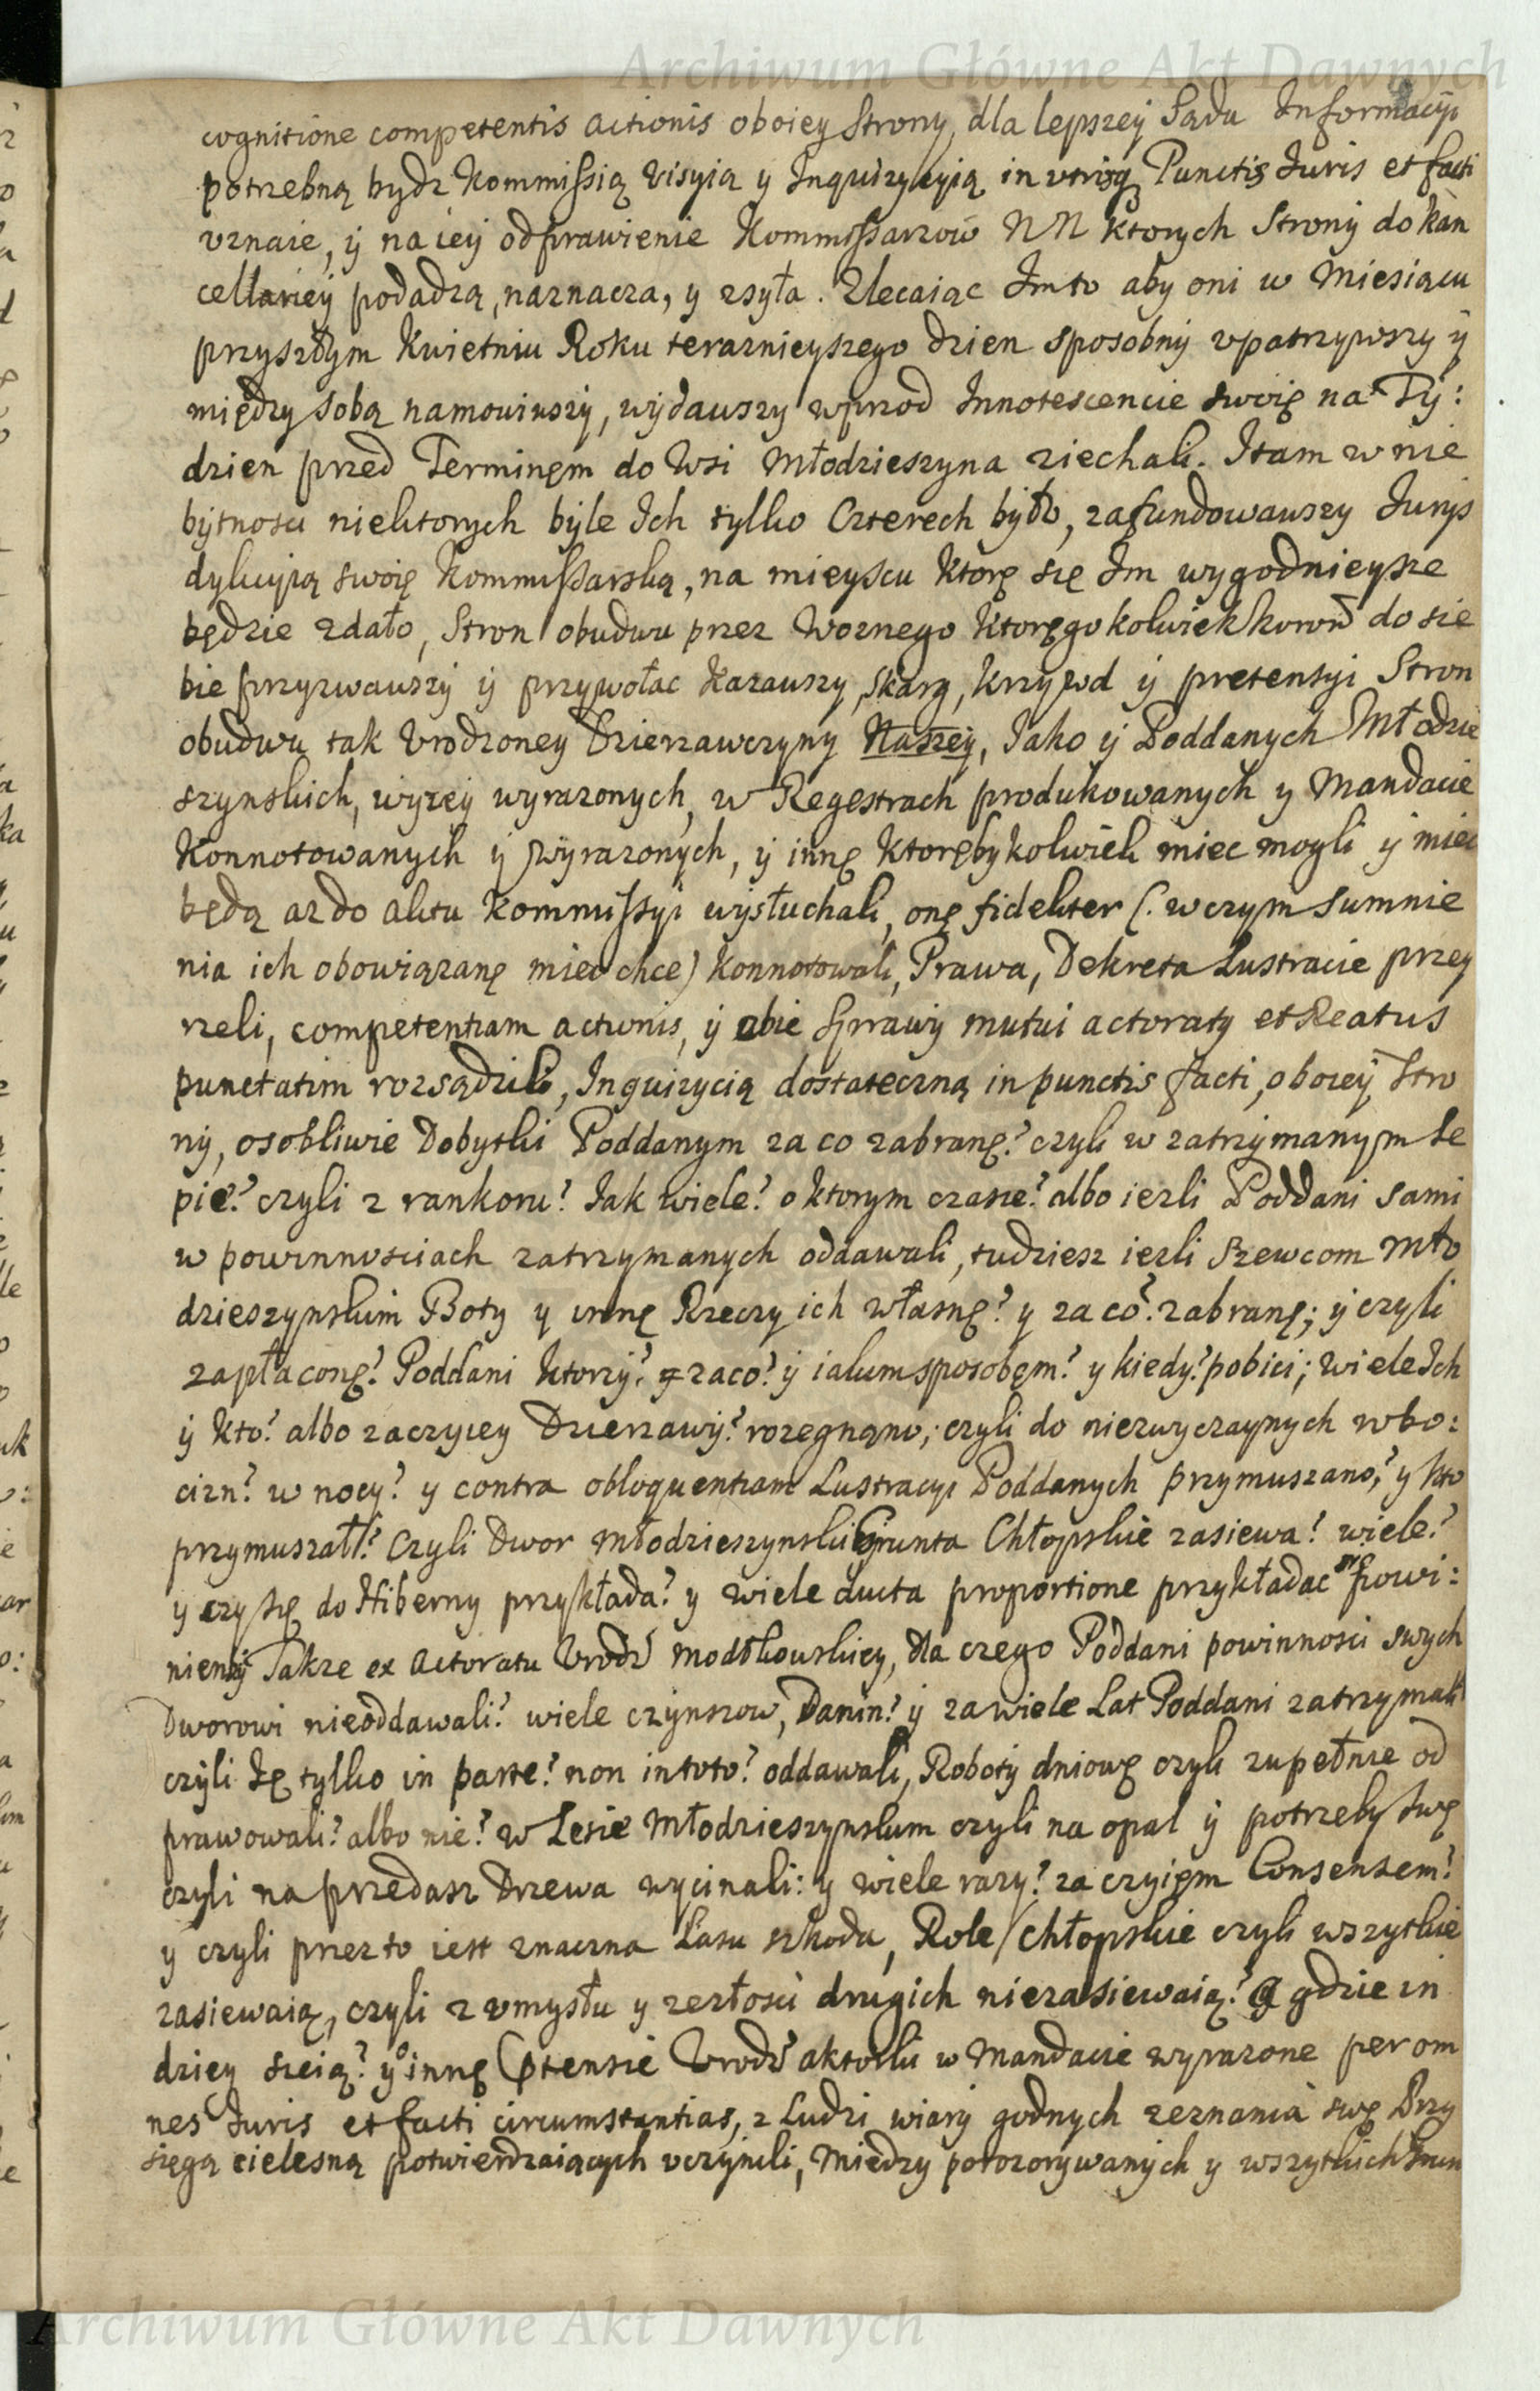 Archiwum Główne Akt Dawnych
cognitione competentis actionis oboiey Strony, dla lepszey Sądu Informacyi
potrzebną bydz Kommissią Visyią y Inquizycyią in utrisq Punctis Iuris et facti
vznaie, ÿ na ieÿ odprawienie Kommissarzow NN ktorych Stronÿ do kan
cellarieÿ podadzą, naznacza, y zsyła. Zlecaiąc Im to aby oni w Miesiącu
przyszłym Kwietniu Roku terazniejszego dzien sposobnÿ vpatrzywszy ÿ
między sobą namowiwszÿ, wÿdawszy wprzod Innotescencie swoię na Tÿ:
dzien przed Terminęm do Wsi Młodzieszyna ziechali. I tam w nie
bÿtnosci niektorych bÿle Ich tylko Czterech bÿło, zafundowawszy Iurÿs
dykcyią swoię Kommissarską, na mieyscu ktorę się Im wygodnieysze
będzie zdało, Stron obudwu przez Woznego ktoręgokolwiek koroñ do sie
bie przyzwawszÿ ÿ przywołac kazawszy, skarg, krzywd ÿ pretensyi Stron
obudwu tak Vrodzoney Dzierzawczyny Naszeÿ, Iako ÿ Poddanych Młodzie
szynskich, wyzeÿ wyrazonych, w Regestrach produkowanych y Mandacie
Konnotowanych ÿ wÿrazonÿch, ÿ innę ktoręby kolwiek miec mogli ÿ miec
będą az do aktu Kommissyi wÿsłuchali, onę fideliter (: w czym sumnie
nia ich obowiązanę miec chce) konnotowali, Prawa, Dekreta Lustracie przey
rzeli, competentiam actionis, ÿ obie Sprawÿ mutui actoraty et Reatus
punctatim rozsądzili, Inquizycią dostateczną in punctis facti, oboieÿ Stro
nÿ, osobliwie Dobytki Poddanym za co zabranę? czyli w zatrzÿmanym Se
pie? czyli z rankoru? Iak wiele? o ktorym czasie? albo iezli Poddani sami
w powinnosciach zatrzymanych oddawali, tudziesz iezli Szewcom Mło
dzieszynskim Boty y innę Rzeczy ich własnę? y za co? zabranę; ÿ czyli
zapłaconę? Poddani ktorzÿ? y za co? ÿ iakim sposobęm? y kiedy? pobici; wiele Ich
ÿ kto? albo za czyiey Dzierzawÿ? rozegnano; czyli do niezwyczaynych robo:
cizn? w nocy? y contra obloquentiam Lustracyi Poddanych przymuszano? y kto
przymuszał? Czyli Dwor Młodzieszynski Grunta Chłopskie zasiewa? wiele?
y czy się do Hiberny przykłada? y wiele ducta proportione przykładac się powi:
nien? ÿ Takze ex Actoratu Vrodz Modlkowskiey, dla czego Poddani powinnosci swych
Dworowi nieoddawali? wiele czynszow, Danin? ÿ za wiele Lat Poddani zatrzymali
czyli Ię tylko in parte? non in toto? oddawali, Robotÿ dniowę czyli zupełnie od
prawowali? albo nie? w Lesie Młodzieszynskim czyli na opal ÿ potrzeby swę
czyli na przedasz Drzewa wycinali: y wiele razy? za czyięm Consensem?
y czyli przez to iest znaczna Lasu szkoda, Role chłopskie czyli wszytkie
zasiewaią, czyli z vmysłu y zezłosci drugich niezasiewaią? a gdzie in
dziey sieią? ÿ innę Ptensie Vrodz aktorki w Mandacie wyrazone per om
nes Iuris et facti circumstantias, z Ludzi wiarÿ godnych zeznania swę Przy
sięgą cielesną potwierdzaiących vczÿnili, Miedzy porozorywanÿch y wszytkich
Archiwum Główne Akt Dawnych